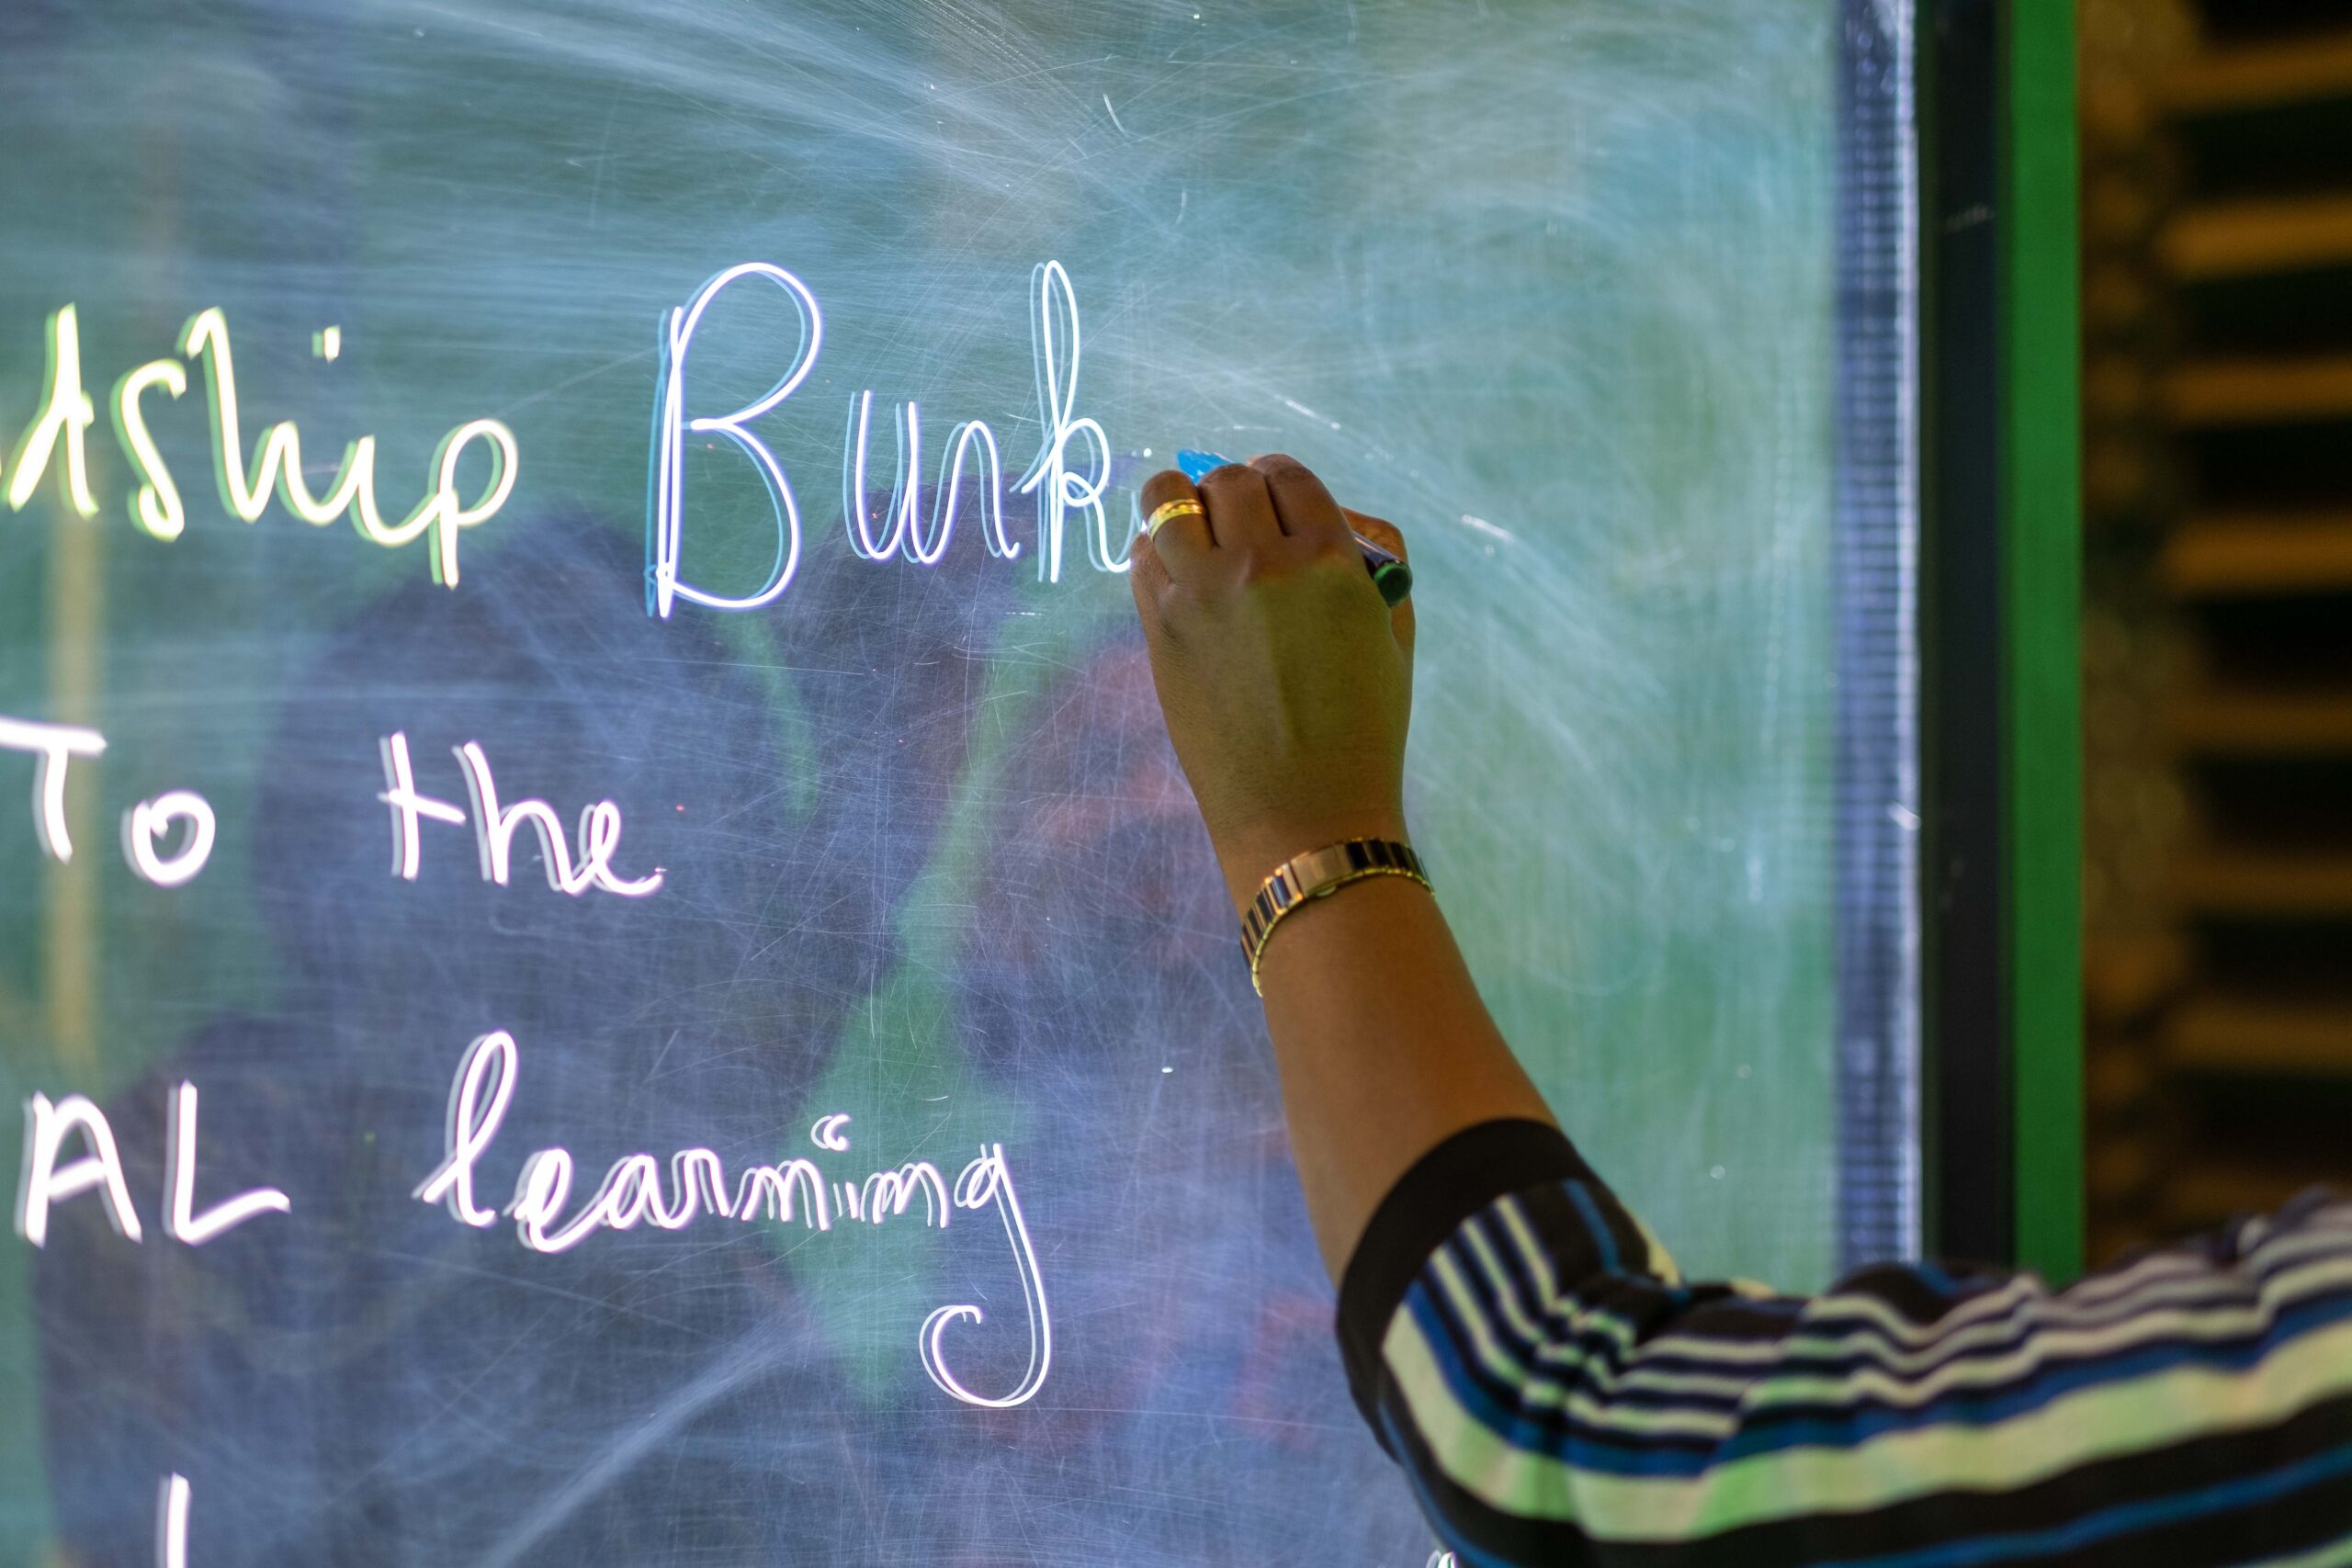 dship Bunk
To the
AL learning